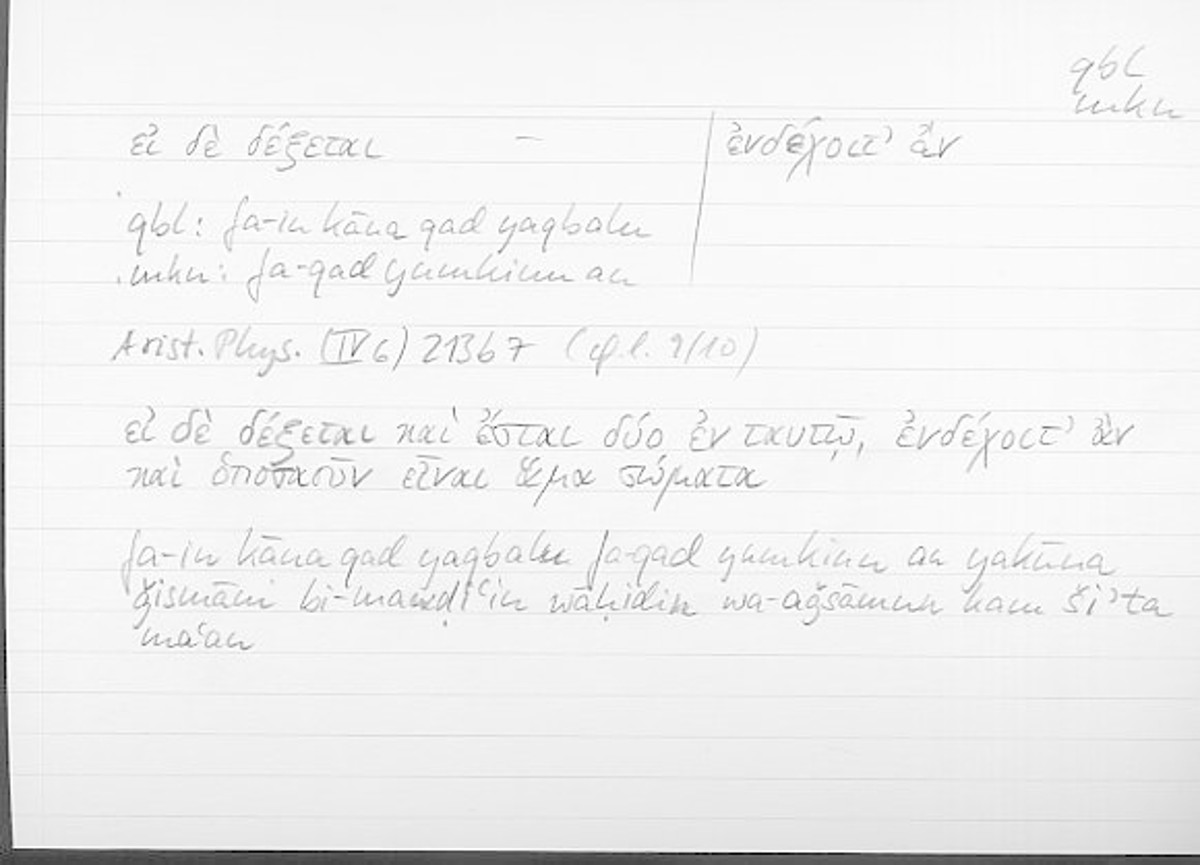 qbl
mkn
εἰ δὲ δέξεται — ἐνδέχοιτ’ ἄν
qbl: fa-in kāna qad yaqbalu
mkn: fa-qad yumkinu an
Arist. Phys. (IV 6) 213b7 (cf. l. 9/10)
εἰ δὲ δέξεται καὶ ἔσται δύο ἐν ταυτῷ, ἐνδέχοιτ’ ἂν
καὶ ὁποσαοῦν εἶναι ἅμα σώματα
fa-in kāna qad yaqbalu fa-qad yumkinu an yakūna
ǧismāni bi-mawḍiʿin wāḥidin wa-aǧsāmun kam šiʾta
maʿan